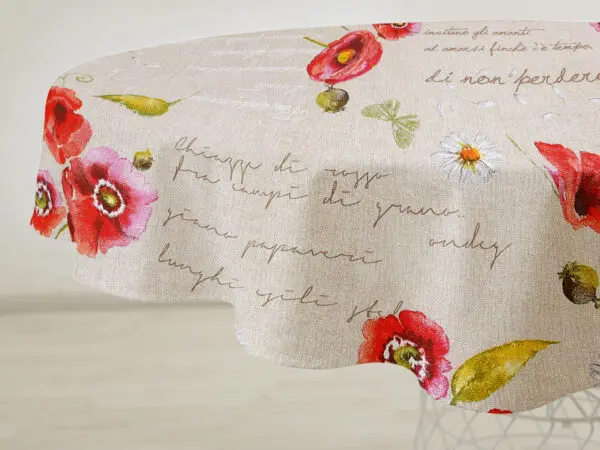 incitano gli amanti
ad amarsi finchè c'è tempo
di non perdere
Chiazze di rosso
fra campi di grano..
giano papaveri ondeg
lunghi esili stel